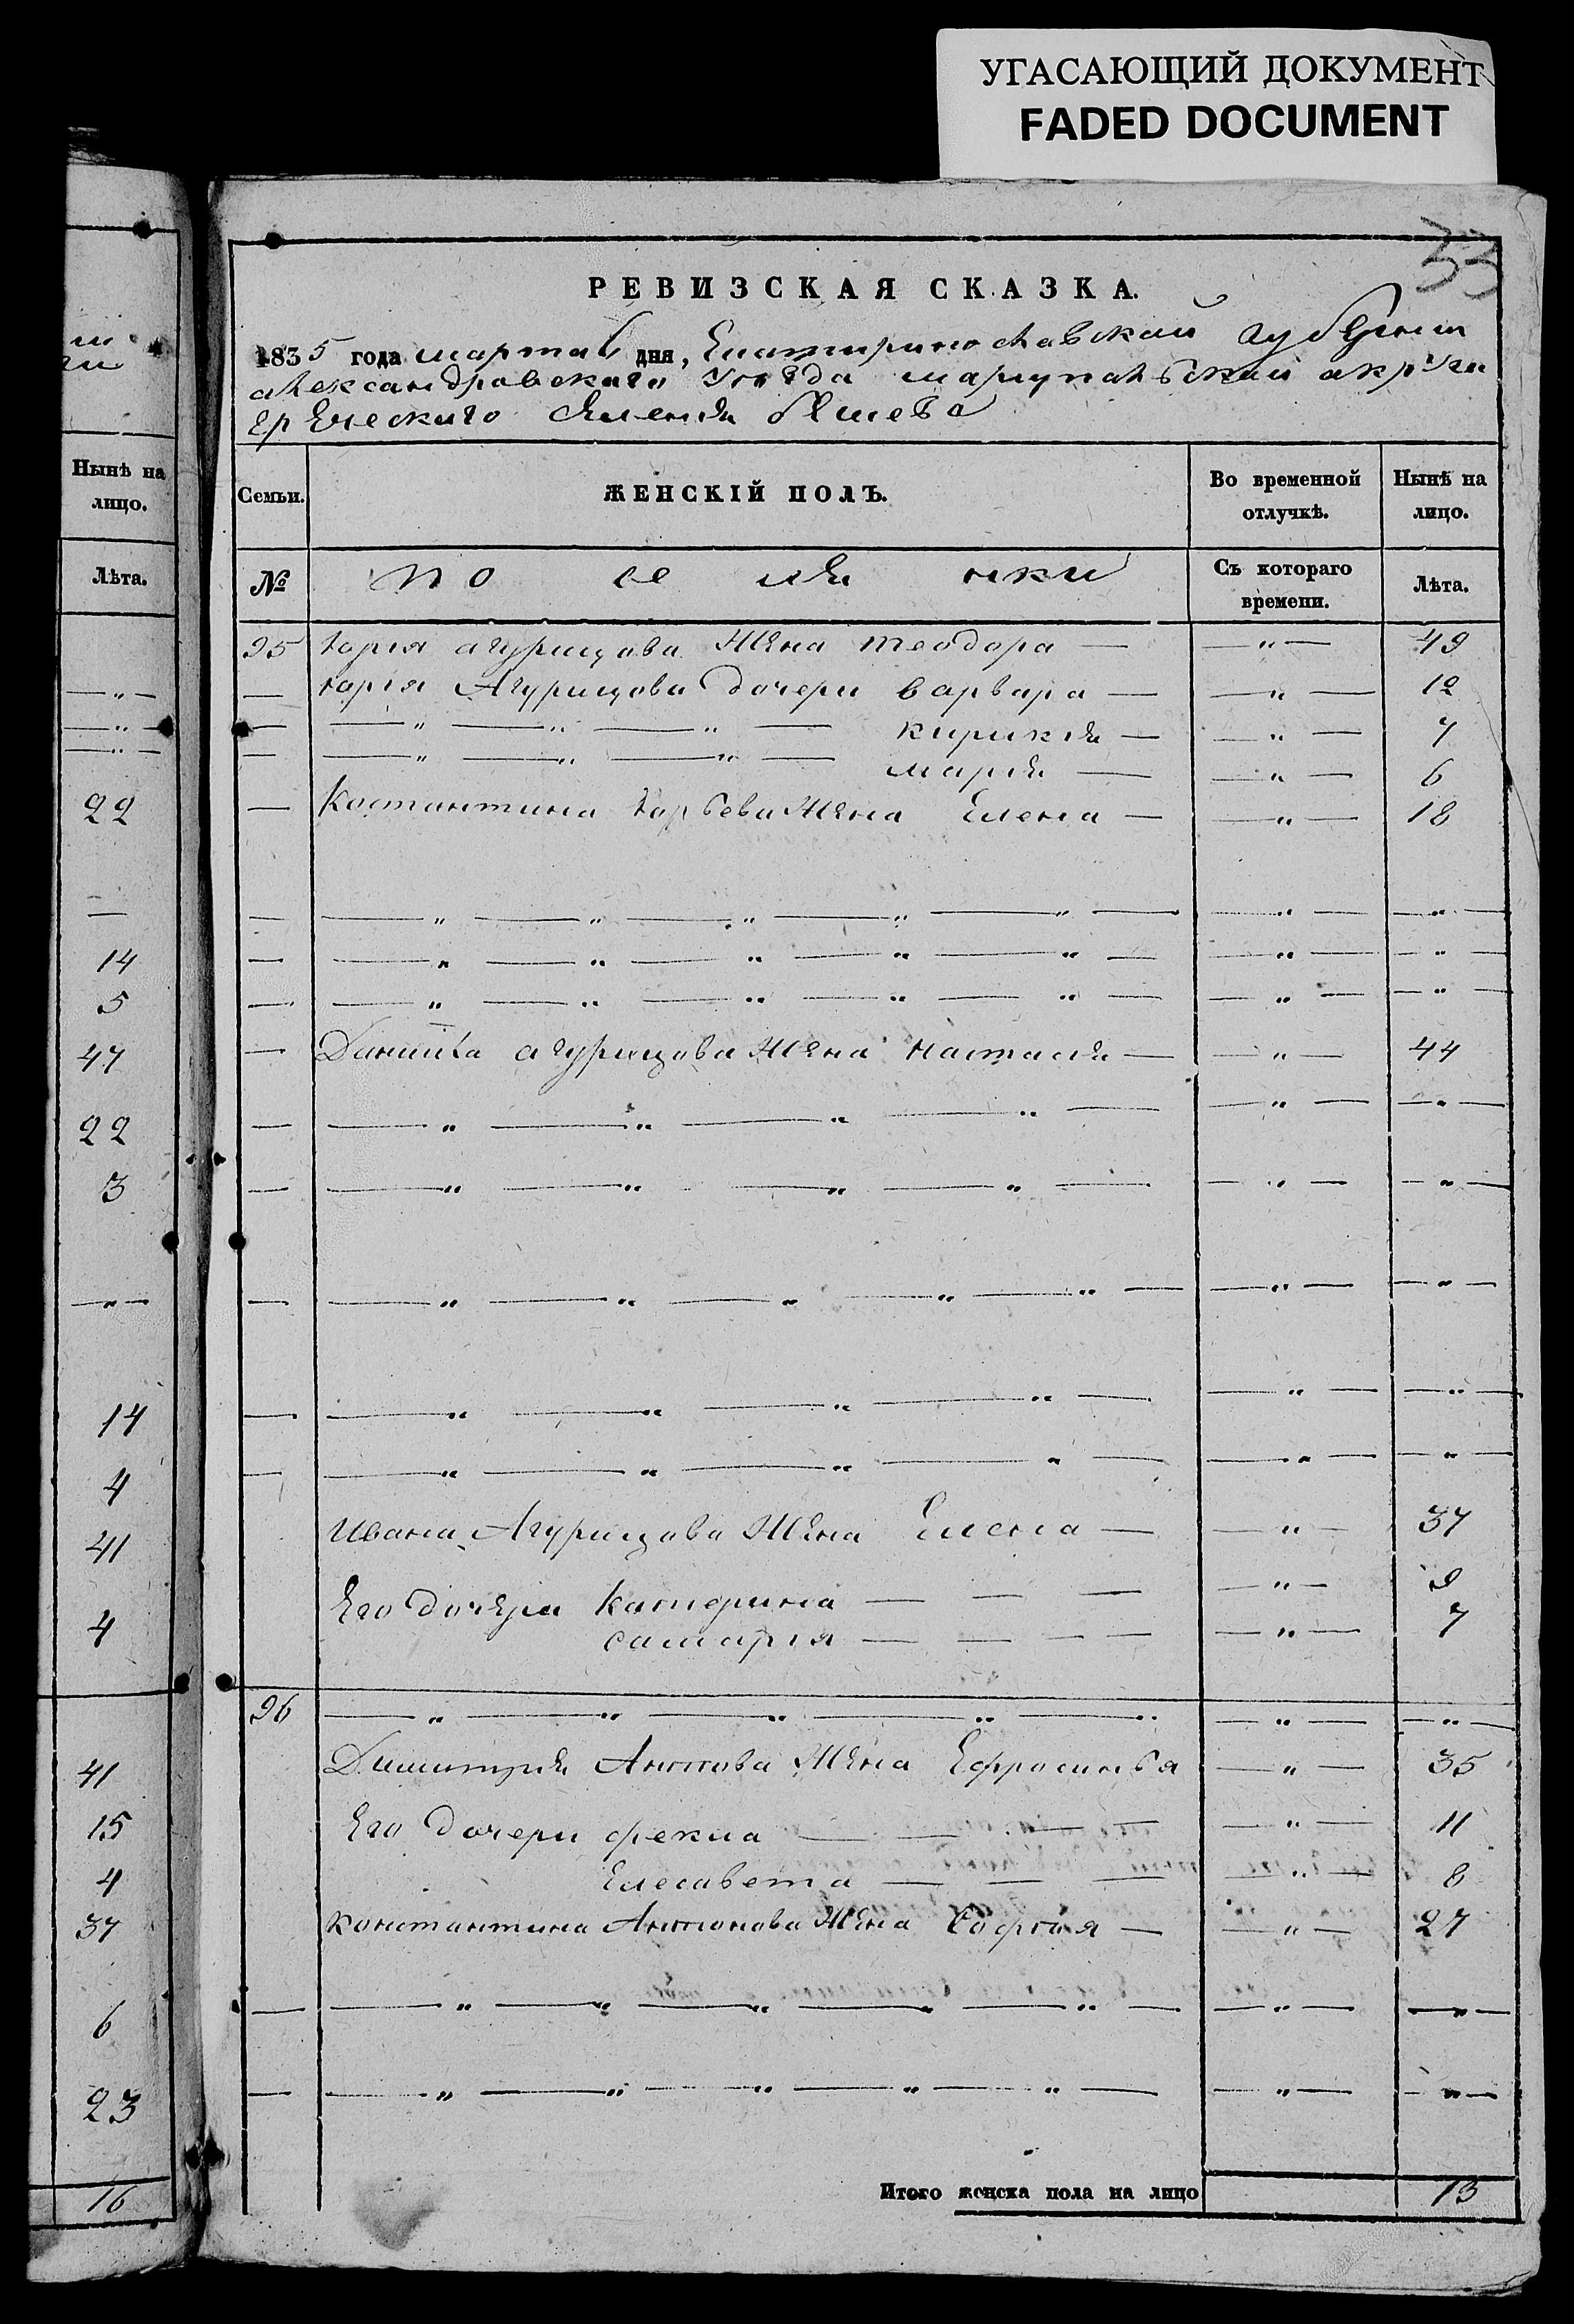 УГАСАЮЩИЙ ДОКУМЕНТ
FADED DOCUMENT
33
РЕВИЗСКАЯ СКАЗКА.
1835 года марта 6 дня, Екатеринославской губернии
александровского уезда мариупольской округи
греческого селения бешева
Нынѣ на лицо.
Лѣта.
Семьи.
ЖЕНСКІЙ ПОЛЪ.
Во временной отлучкѣ.
Нынѣ на лицо.
№
поселянки
Съ котораго времени.
Лѣта.
95 юргия агурицова жена теодора — — „ — 49
— юргия Агурицова дочери варвара — — „ — 12
— — „ — „ — „ — кирикия — — „ — 7
— — „ — „ — „ — мария — — „ — 6
— Костантина юрьева жена Елена — — „ — 18
— — „ — „ — „ — „ — „ — — „ — — „ —
— — „ — „ — „ — „ — „ — — „ — — „ —
— — „ — „ — „ — „ — „ — — „ — — „ —
— Данила агурицова жена настасия — — „ — 44
— — „ — „ — „ — „ — — „ — — „ —
— — „ — „ — „ — „ — — „ — — „ —
— — „ — „ — „ — „ — „ — — „ — — „ —
— — „ — „ — „ — „ — — „ — — „ —
— — „ — „ — „ — „ — — „ — — „ —
Ивана Агурицова жена Елена — — „ — 37
Его дочери катерина — — — — „ — 9
самария — — — — — „ — 7
96 — „ — „ — „ — „ — „ — „ — — „ —
Димитрия Антонова жена Ефросинья — „ — 35
Его дочери фекла — — — — — „ — 11
Елесавета — — — — „ — 8
константина Антонова жена София — — „ — 27
— — „ — „ — „ — „ — „ — — „ — — „ —
— — „ — „ — „ — „ — „ — — „ — — „ —
Итого женска пола на лицо 13
— „ —
— „ —
— „ —
22
—
14
5
47
22
3
— „ —
14
4
41
4
41
15
4
37
6
23
16